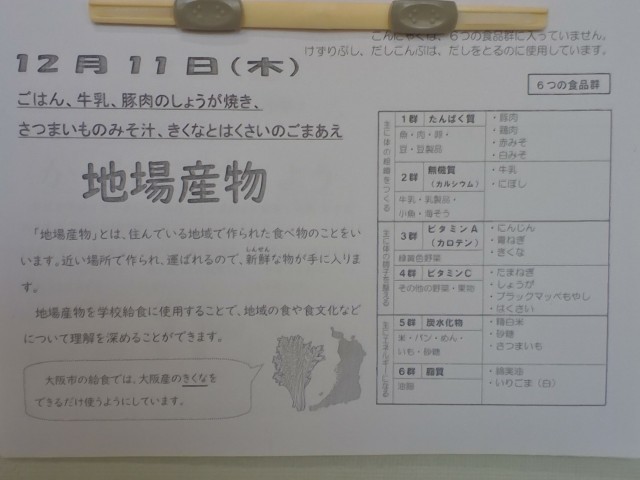 こんにゃくは、６つの食品群に入っていません。
けずりぶし、だしこんぶは、だしをとるのに使用しています。
12月11日(木)
６つの食品群
ごはん、牛乳、豚肉のしょうが焼き、
さつまいものみそ汁、きくなとはくさいのごまあえ
地場産物
「地場産物」とは、住んでいる地域で作られた食べ物のことをい
います。近い場所で作られ、運ばれるので、新鮮な物が手に入りま
しんせん
す。
地場産物を学校給食に使用することで、地域の食や食文化など
について理解を深めることができます。
大阪市の給食では、大阪産のきくなを
できるだけ使うようにしています。
主に体の組織をつくる
1群 たんぱく質
魚・肉・卵・
豆・豆製品
・豚肉
・鶏肉
・赤みそ
・白みそ
2群 無機質
(カルシウム)
牛乳・乳製品・
小魚・海そう
・牛乳
・にぼし
主に体の調子を整える
3群 ビタミンA
(カロテン)
緑黄色野菜
・にんじん
・青ねぎ
・きくな
4群 ビタミンC
その他の野菜・果物
・たまねぎ
・しょうが
・ブラックマッペもやし
・はくさい
主にエネルギーになる
5群 炭水化物
米・パン・めん・
いも・砂糖
・精白米
・砂糖
・さつまいも
6群 脂質
油脂
・綿実油
・いりごま（白）